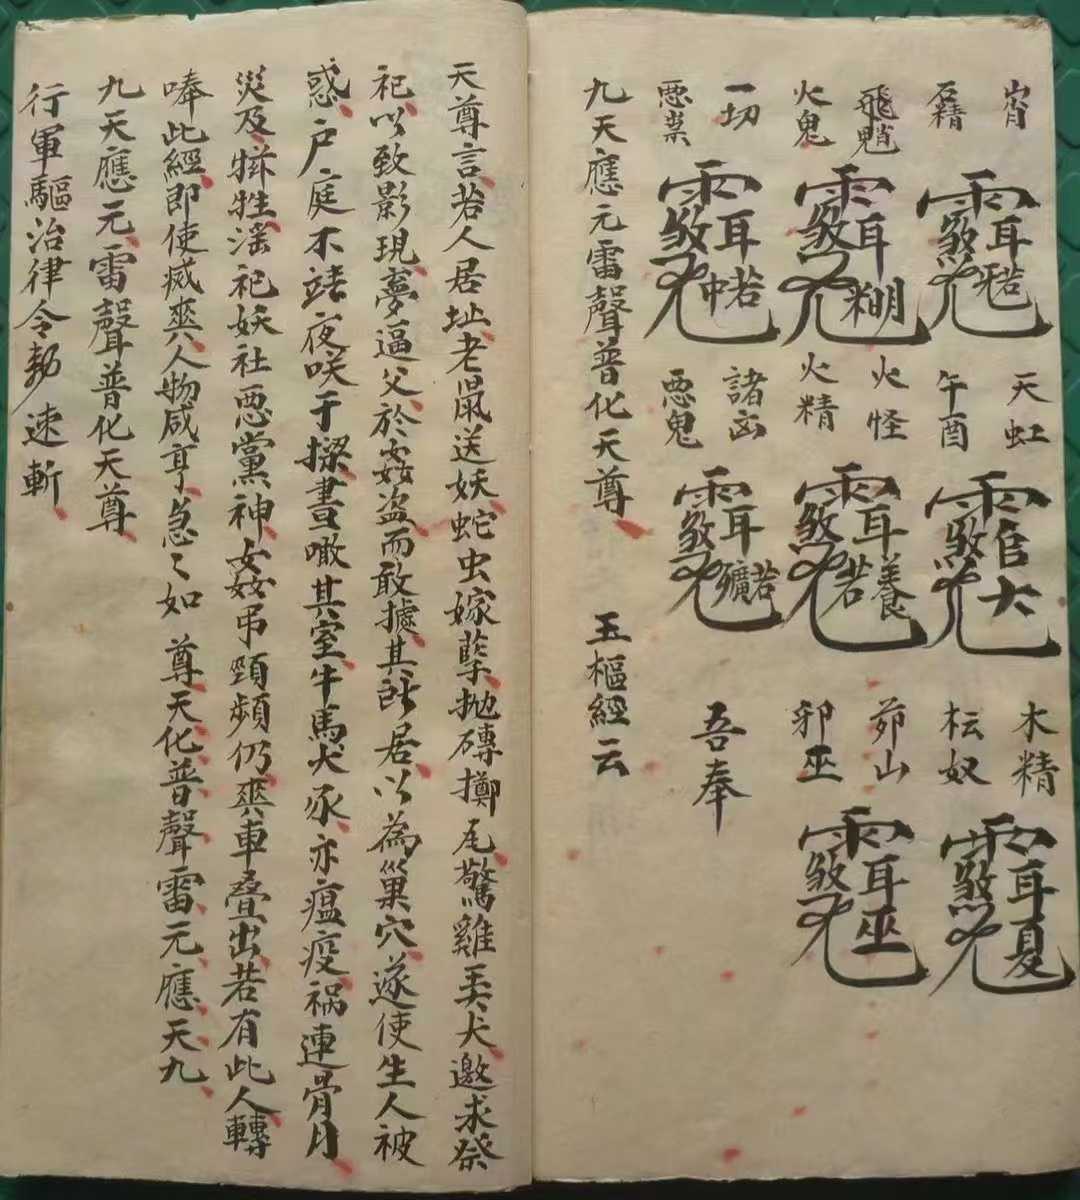 宵
石精
飛魈
火鬼
一切
惡祟
天虹
午酉
火怪
火精
諸凶
惡鬼
木精
枟奴
茆山
邪巫
吾奉
九天應元雷聲普化天尊
玉樞經云
天尊言若人居址老鼠送妖蛇虫嫁孽拋磚擲尾驚雞弄犬邀求祭
祀以致影現夢逼父於姦盗而敢據其所居以為巢穴遂使生人被
惑户庭不靖夜咲于揬晝瞰其室牛馬犬豕亦瘟疫禍連骨月
災及牲滛祀妖社惡黨神姦弔頸頻仍爽車叠出若有此人轉
唪此經即使威爽人物咸亨急々如尊天化普聲雷元應天九
九天應元雷聲普化天尊
行軍驅治律令勑速斬